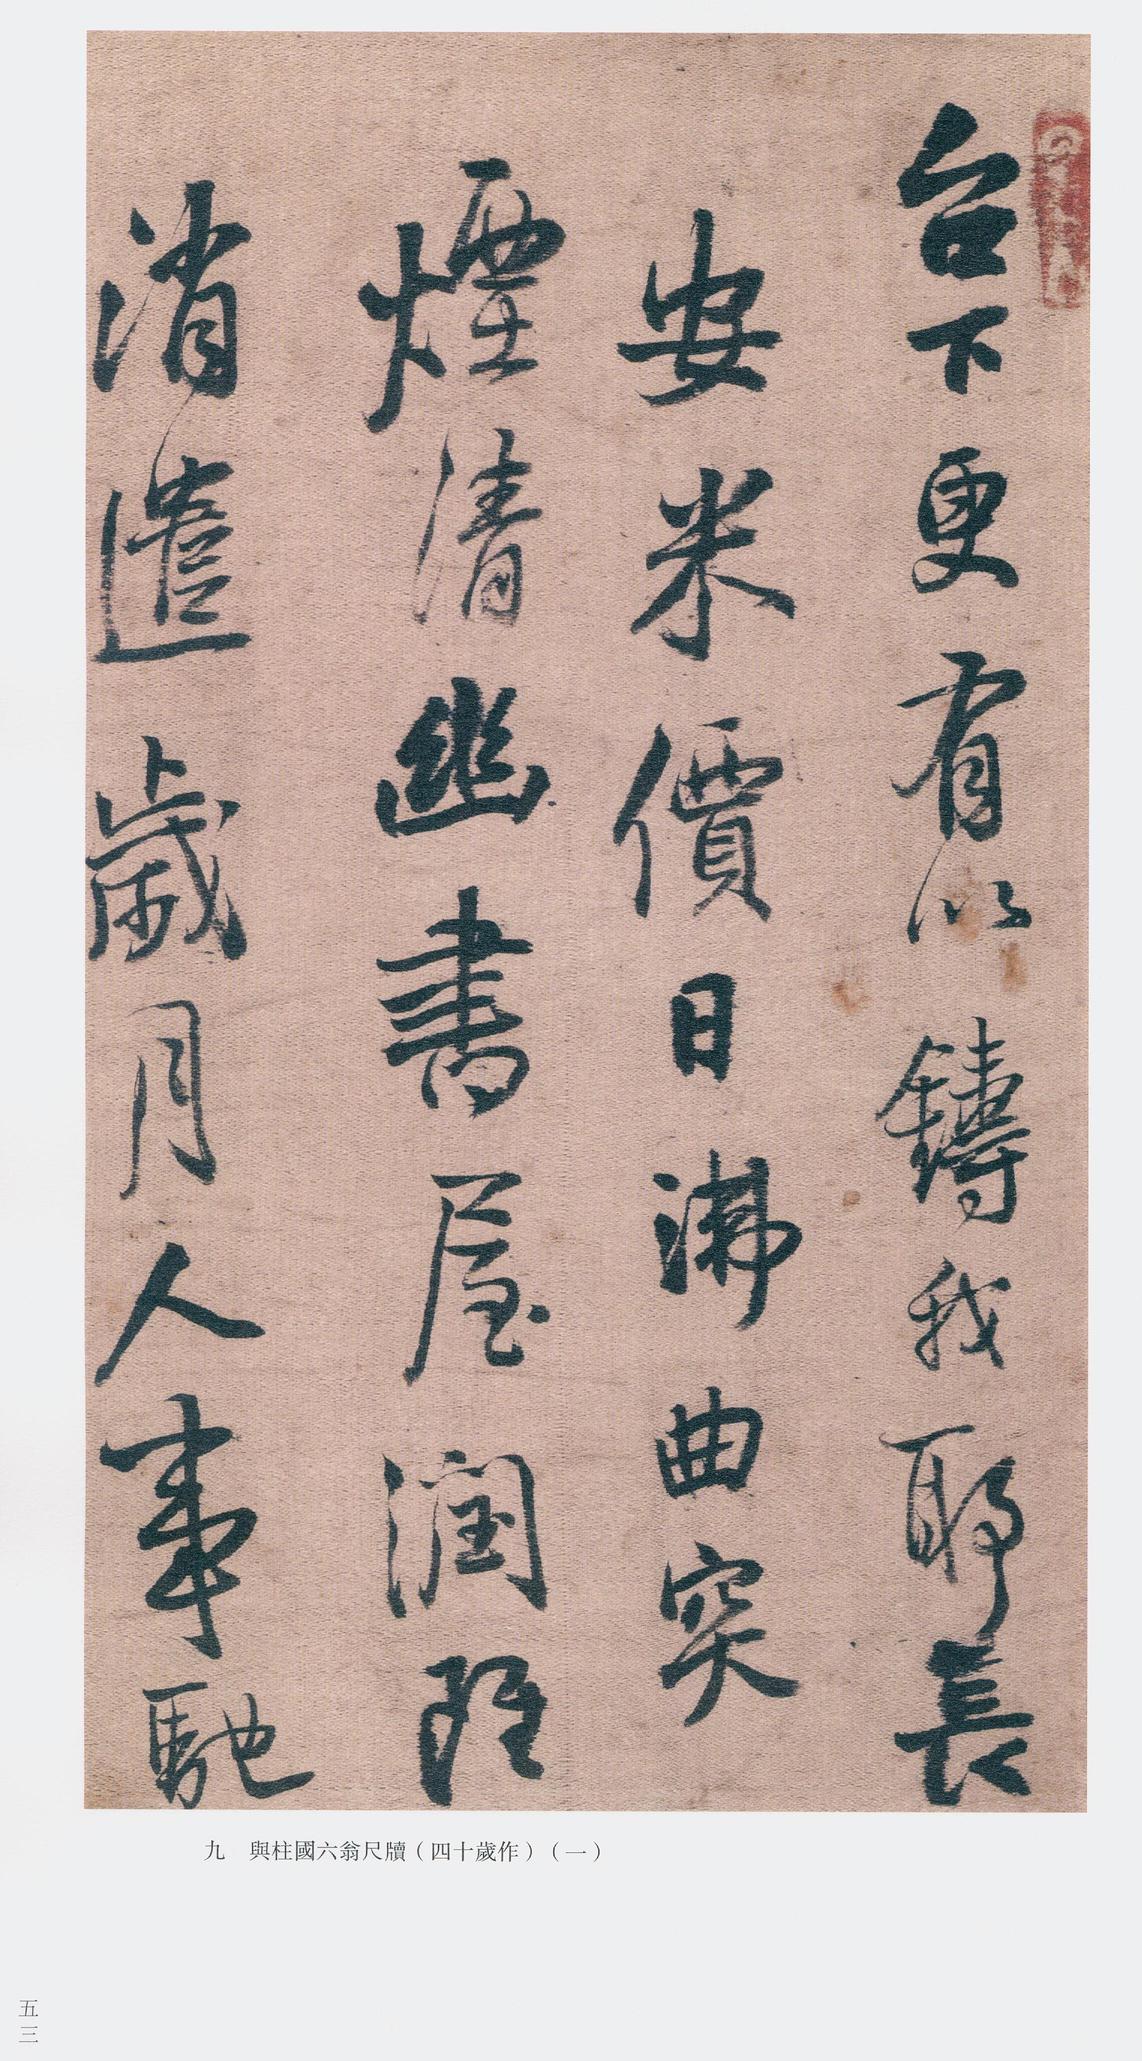 台下更有以鑄我耶長
安米價日沸曲突
煙清幽書屋潤既
消遣歲月人事馳
九　與柱國六翁尺牘（四十歲作）（一）
五三